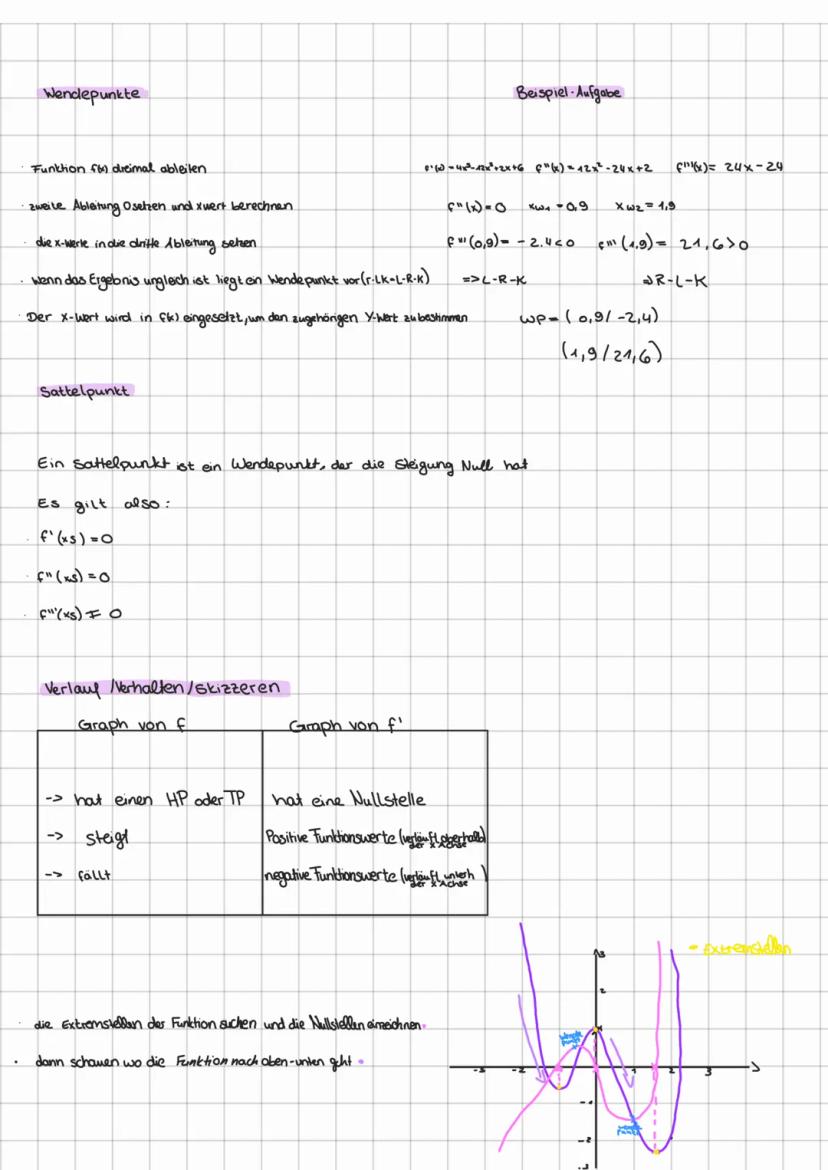 Wendepunkte
Beispiel-Aufgabe
· Funktion f(x) dreimal ableiten
f'(x) = 4x³-12x²+2x+6 f''(x) = 12x² - 24x + 2 f'''(x) = 24x - 24
· zweite Ableitung 0 setzen und xwert berechnen
f''(x) = 0 xw1 = 0,9 xw2 = 1,9
· die x-Werte in die dritte Ableitung setzen
f'''(0,9) = -2,4 < 0 f'''(1,9) = 21,6 > 0
· wenn das Ergebnis ungleich ist liegt ein Wendepunkt vor (r-LK=L-R-K)
=> L-R-K
=> R-L-K
· Der x-Wert wird in f(x) eingesetzt, um den zugehörigen Y-Wert zu bestimmen
WP = (0,9/-2,4)
(1,9/21,6)
Sattelpunkt
Ein Sattelpunkt ist ein Wendepunkt, der die Steigung Null hat
Es gilt also:
· f'(xs) = 0
· f''(xs) = 0
· f'''(xs) ≠ 0
Verlauf /Verhalten/skizzeren
Graph von f
Graph von f'
-> hat einen HP oder TP
hat eine Nullstelle
-> steigt
Positive Funktionswerte (verläuft oberhalb der x Achse)
-> fällt
negative Funktionswerte (verläuft unterh der x Achse)
- Extremstellen
· die Extremstellen der Funktion suchen und die Nullstellen einzeichnen
· dann schauen wo die Funktion nach oben-unten geht
3
2
1
Wende punkt
-3 -2 1 2 3
-1
Wende punkt
-2
-3